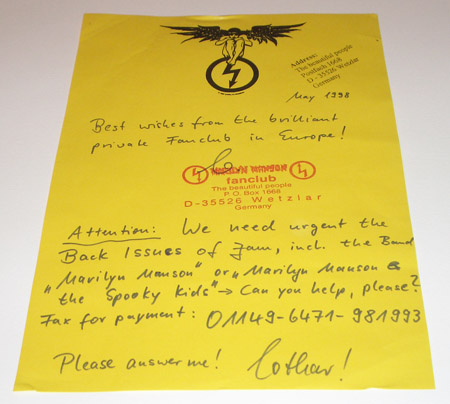 Address:
The beautiful people
Postfach 1668
D - 35526 Wetzlar
Germany
May 1998
Best wishes from the brilliant
private Fanclub in Europe!
MARILYN MANSON
fanclub
The beautiful people
P.O. Box 1668
D-35526 Wetzlar
Germany
Attention: We need urgent the
Back Issues of Jam, incl. the Band
„Marilyn Manson" or „Marilyn Manson &
the Spooky Kids" → Can you help, please?
Fax for payment: 01149-6471-981993
Please answer me! Lothar!